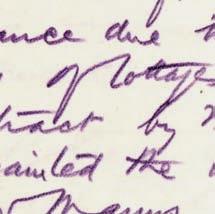 ance due
of Cottages
tract by
ainted the